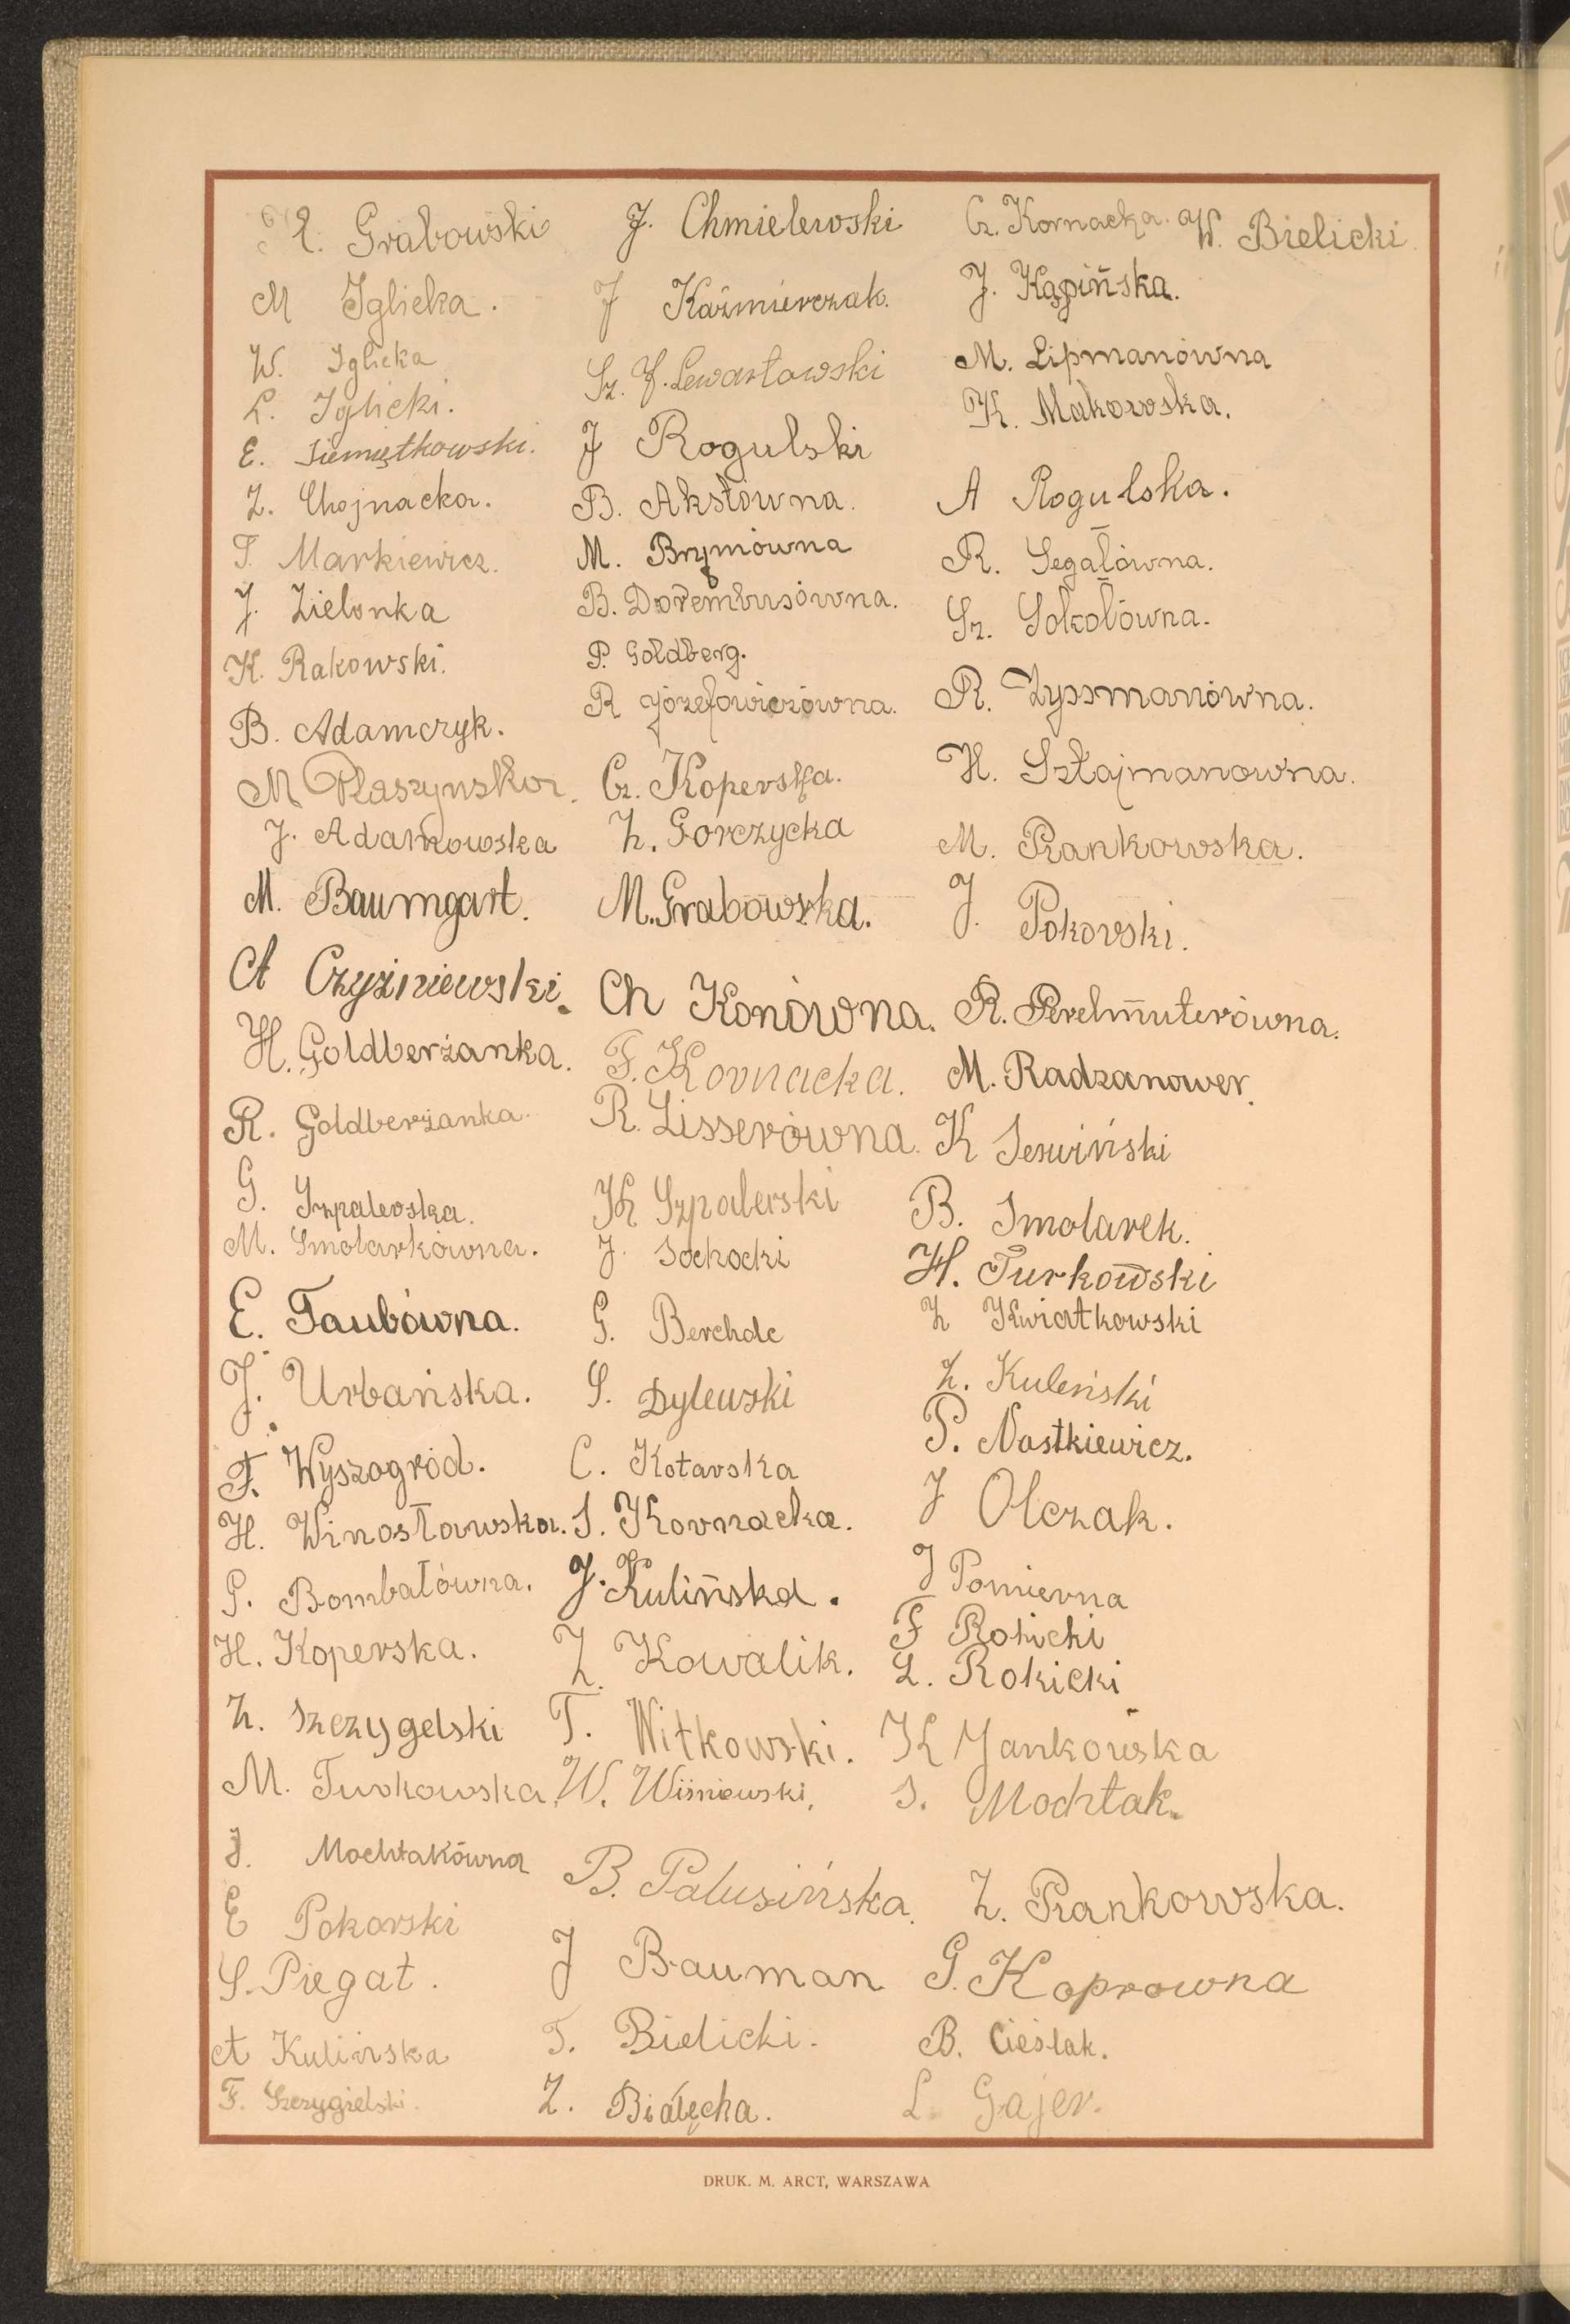 E. Grabowski
M Iglicka.
W. Iglicka
L. Iglicki.
E. Siemiętkowski.
Z. Chojnacka.
T. Markiewicz.
J. Zielonka
K. Rakowski.
B. Adamczyk.
M Płaszynska.
J. Adamkowska
M. Baumgart.
A Czyżniewski.
H. Goldberżanka.
R. Goldberżanka.
G. Szpalerska.
M. Smolarkówna.
E. Taubówna.
J. Urbańska.
F. Wyszogród.
H. Winosławska.
P. Bombałówna.
H. Koperska.
Z. Szczygelski
M. Turkowska.
J. Mochtakówna
E Pokorski
S. Piegat.
A Kulińska
F. Szczygielski.
J. Chmielewski
J Kaźmierczak.
Sz. J. Lewartowski
J Rogulski
B. Akstówna.
M. Brzymówna
B. Dorembusówna.
P. Goldberg.
R Józefowiczówna.
Cz. Koperska.
Z. Gorczycka
M. Grabowska.
Ch Konówna.
F. Kornacka.
R. Lisserówna.
K Szpalerski
J. Sochocki
G. Berchdc
S. Dylewski
C. Kotarska
S. Kornacka.
J. Kulińska.
Z. Kowalik.
T. Witkowski.
W. Wiśniewski.
B. Palusińska.
J Bauman
T. Bielicki.
Z. Białęcha.
Cz. Kornacka. W. Bielicki.
J. Kąpińska.
M. Lipmanówna
K. Makowska.
A Rogulska.
R. Segałówna.
Sz. Sokołówna.
R. Zyssmanówna.
H. Sztajmanowna.
M. Rankowska.
J. Pokorski.
R. Perelmuterówna.
M. Radzanower.
K Serwiński
B. Smolarek.
H. Turkowski
Z Kwiatkowski
Z. Kuleński
P. Nastkiewicz.
J Olczak.
J Pomierna
F Rokicki
L. Rokicki
K Jankowska
S. Mochtak.
Z. Rankowska.
G. Koprowna
B. Cieślak.
L. Gajer.
DRUK. M. ARCT, WARSZAWA